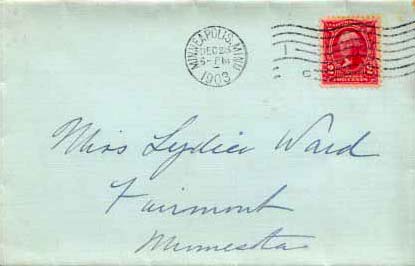 MINNEAPOLIS, MINN
DEC 28
5-PM
1903
2 2
TWO CENTS
Miss Lydia Ward
Fairmont
Minnesota